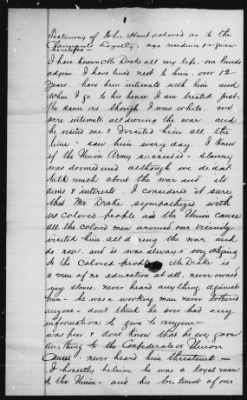 Testimony of John Hunt colored as to the
Claimants Loyalty. age residence as given
therefore
I have known Mr Drake all my life. our lands
adjoin I have lived next to him over 12
years. have been intimate with him and
when I go to his house I am treated just
the same as though I was white. and
were intimate all during the war and
he visited me & I visited him all the
time. saw him every day. I knew
if the Union Army succeeded slavery
was doomed and although we did not
talk much about the war and its
aims & interests. I considered it sure
that Mr Drake sympathized with
us colored people and the Union cause
all the colored men around our vicinity
visited him all during the war. and
do now. and is was always very obliging
to the Colored people. Mr Drake is
a man of no education at all. never owned
any slaves. never heard anything against
him. he was a working man never bothered
anyone. don't think he ever had any
information to give to anyone
was poor & dont know that he ever gave
anything to the Confederate or Union
Cause. never heard him threatened
I honestly believe he was a loyal man
to the Union. and his treatment of our